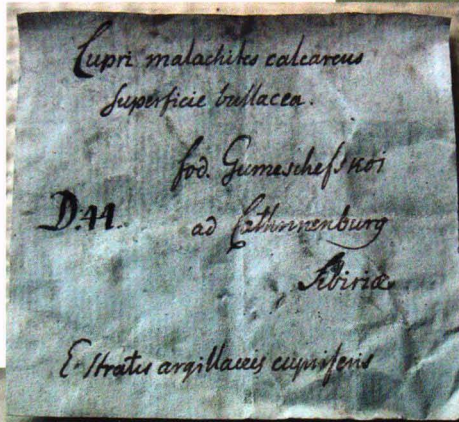 Cupri malachites calcareus
superficie bullacea.
fod. Gumeschefskoi
D:44. ad Cathrinenburg
Sibiriæ
E. stratis argillaceis cupriferis